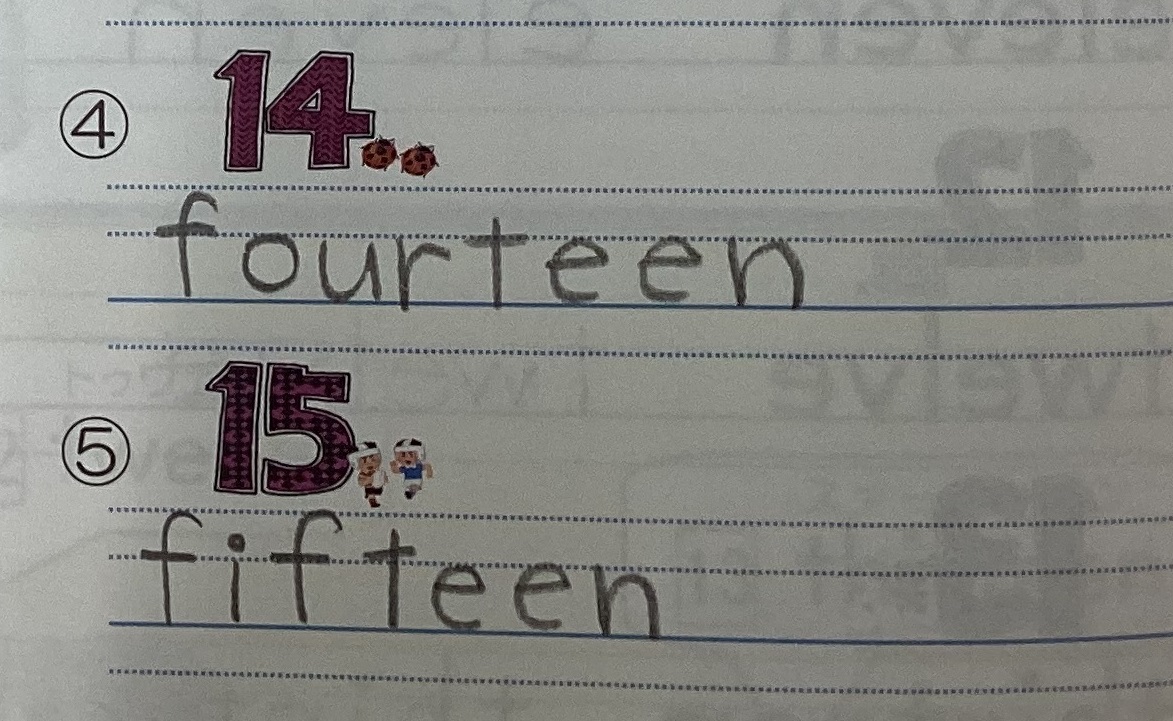 ④ 14
fourteen
⑤ 15
fifteen